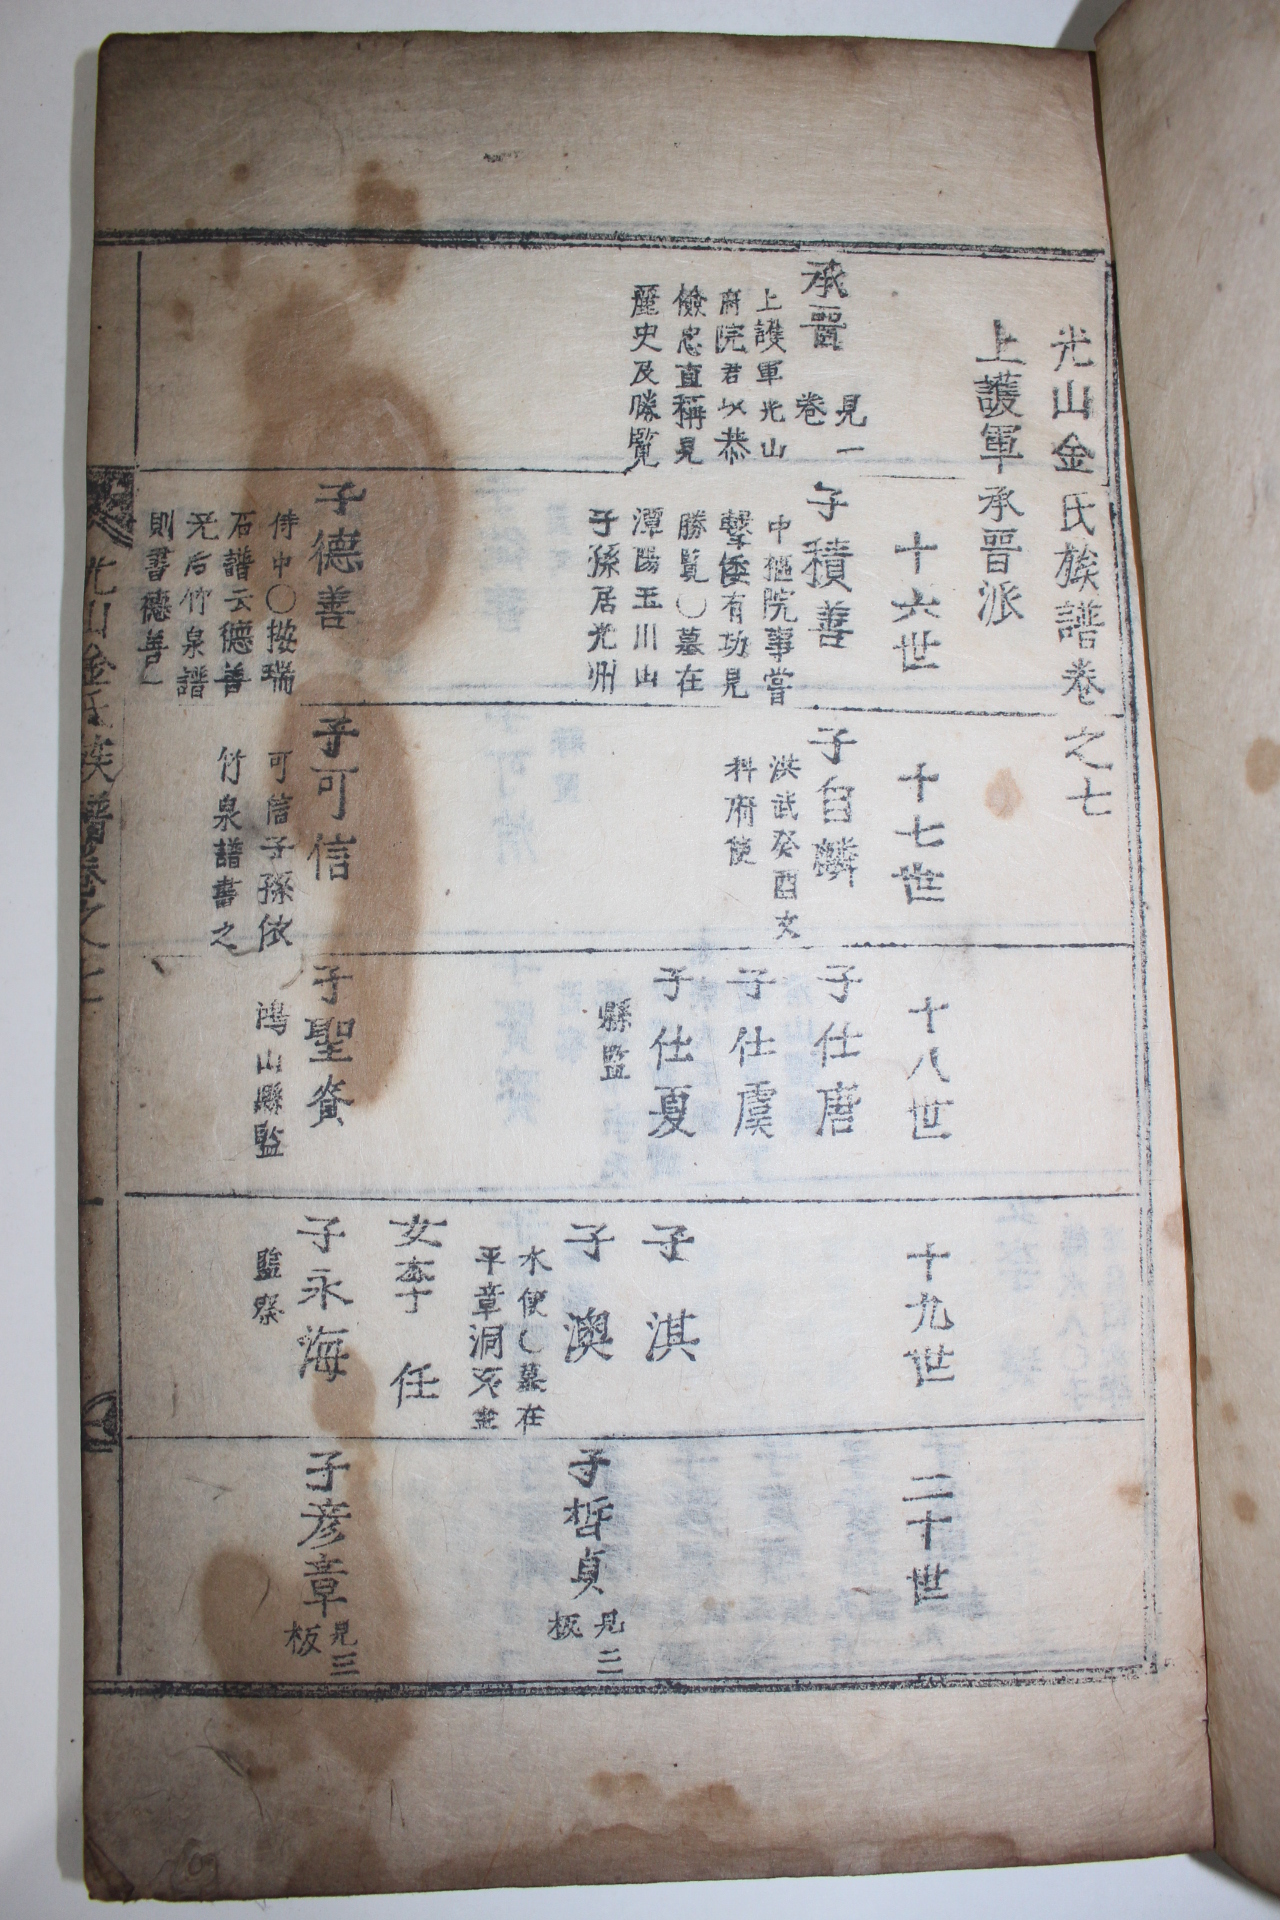 光山金氏族譜卷之七
上護軍承晉派
承晉
見一
卷
上護軍光山
府院君以恭
儉忠直稱見
麗史及勝覽
十六世
子積善
中樞院事嘗
擊倭有功見
勝覽〇墓在
潭陽玉川山
子孫居光州
子德善
侍中〇按瑞
石譜云德善
无后竹泉譜
則書德善
十七世
子自麟
洪武癸酉文
科府使
子可信
可信子孫依
竹泉譜書之
十八世
子仕唐
子仕虞
子仕夏
縣監
子聖賚
鴻山縣監
十九世
子淇
子澳
水使〇墓在
平章洞亥坐
女李任
子永海
監察
二十世
子哲貞
見二
板
子彦章
見三
板
光山金氏族譜卷之七
一